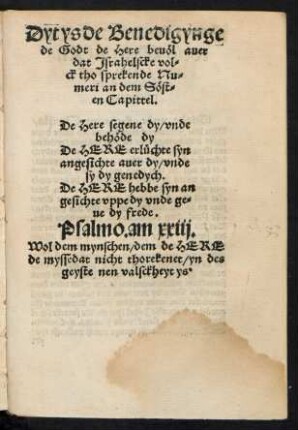 Dyt ys de Benedigynge
de Godt de Here bevol auer
dat Israhelscke vol-
ck tho sprekende Nu-
meri an dem Sost-
en Capittel.
De Here segene dy/vnde
behode dy
De HERE erluchte syn
angesichte auer dy/vnde
sy dy genedych.
De HERE hebbe syn an
gesichte vppe dy vnde ge-
ue dy frede.
Psalmo. am xxiij.
Wol dem mynschen/dem de HERE
de myssedat nicht thorekenet/yn des
geyste nen valsckheyt ys.